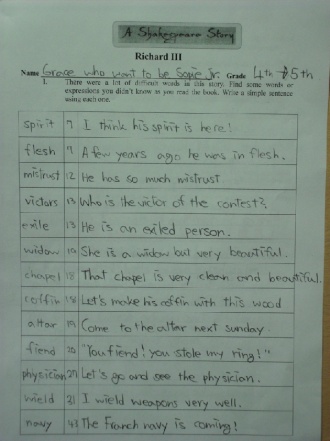 A Shakespeare Story
Richard III
Name Grace who want to be Sopie Jr. Grade 4th → 5th
1. There were a lot of difficult words in this story. Find some words or
expressions you didn't know as you read the book. Write a simple sentence
using each one.
spirit 7 I think his spirit is here!
flesh 9 A few years ago he was in flesh.
mistrust 12 He has so much mistrust
victors 13 Who is the victor of the contest?
exile 13 He is an exiled person.
widow 19 She is a widow but very beautiful.
chapel 18 That chapel is very clean and beautiful.
coffin 18 Let's make his coffin with this wood
altar 19 Come to the altar next sunday.
fiend 20 "You fiend! you stole my ring!"
physician 29 Let's go and see the physician.
wield 31 I wield weapons very well.
navy 43 The French navy is coming!